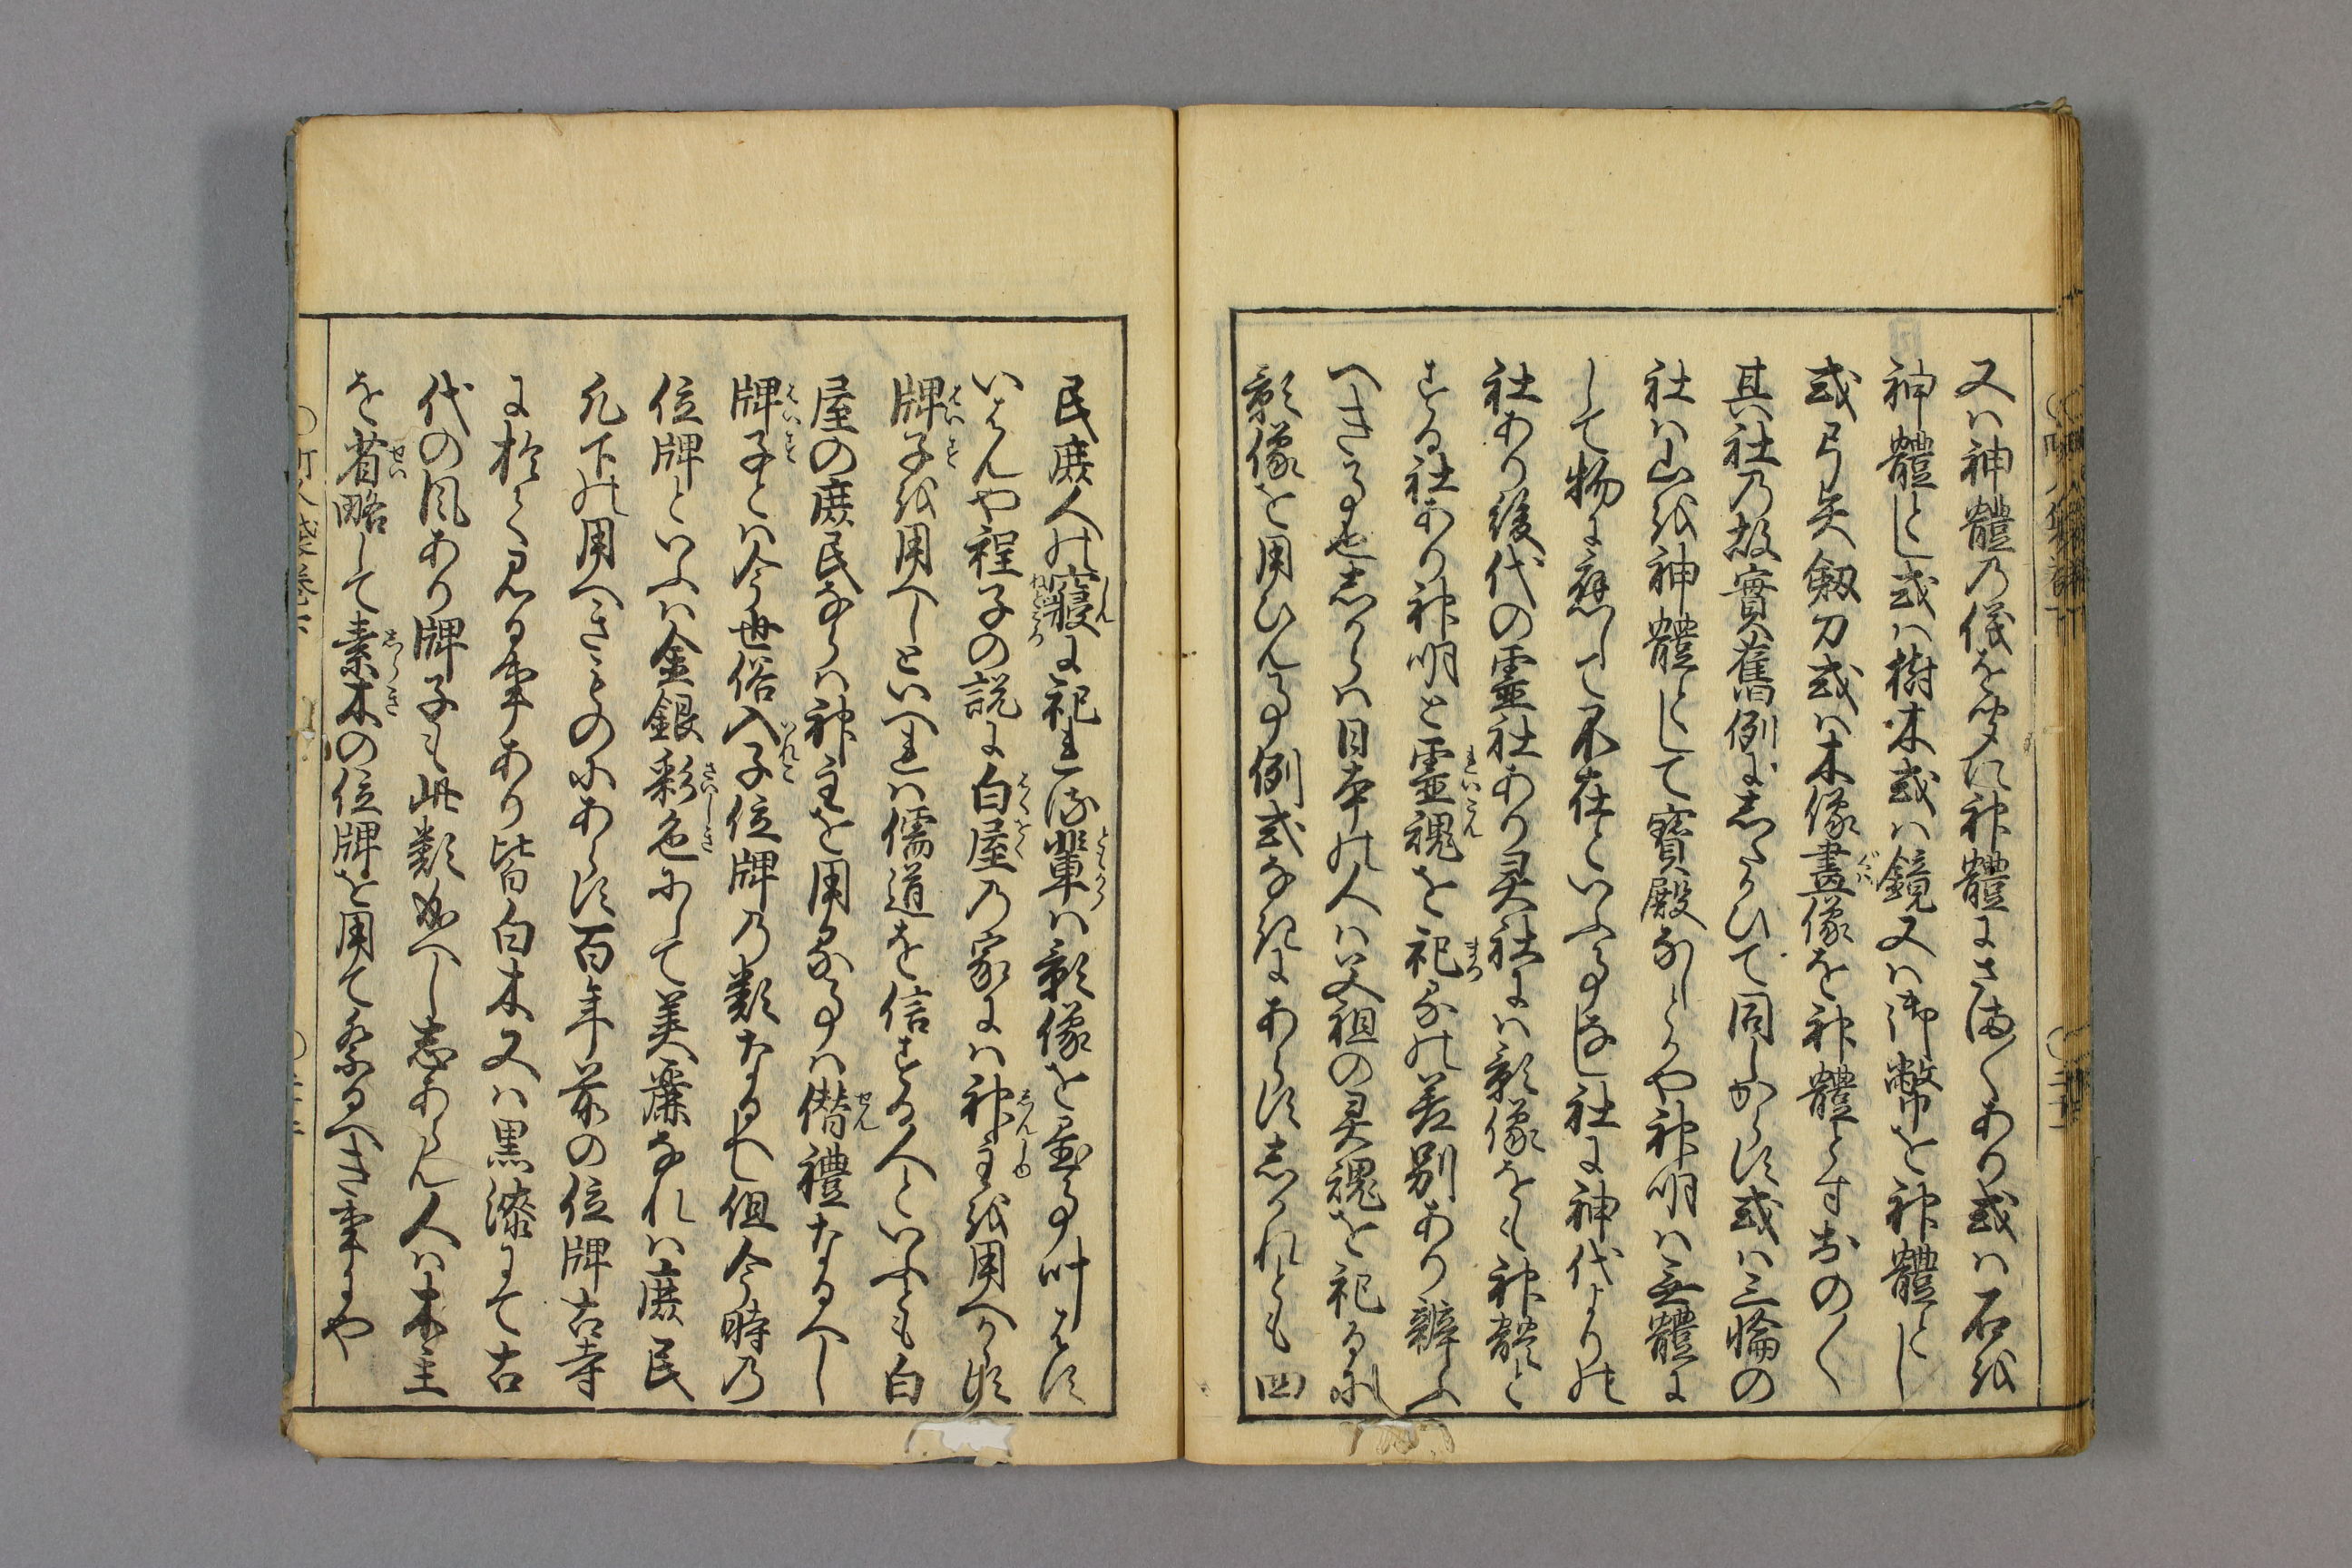 又ハ神體乃儀を聞に神體にさま〱あり或ハ石を
神體とし或ハ樹木或ハ鏡又ハ御幣を神體とし
或弓矢劔刀或ハ木像畫像を神體とすおの〱
其社乃故實舊例にしたかひて同しからす或ハ三輪の
社ハ山を神體として寳殿なしとかや神明ハ無體に
して物に應して不在といふ事なし社に神代よりの
社あり後代の霊社あり灵社にハ影像をも神體と
する社あり神明と霊魂を祀るの差別あり辨ふ
へき事也しからハ日本の人ハ父祖の灵魂を祀るに
影像を用ひん事例式なきにあらすしかれとも四
民庶人の寝に祀れる輩ハ影像を畫事叶はす
いはんや程子の説に白屋乃家にハ神主を用へからす
牌子を用へしといへれハ儒道を信する人といふとも白
屋の庶民ならハ神主を用る事ハ僭禮なるへし
牌子とハ今世俗入子位牌乃類なるへし但今時乃
位牌といふハ金銀彩色にして美麗なれハ庶民
凡下の用へきものにあらす百年前の位牌古寺
に於て見る事あり皆白木又ハ黒漆にて古
代の風あり牌子も此類成へし志あらん人ハ木主
を省略して素木の位牌を用て祭るへき事にや